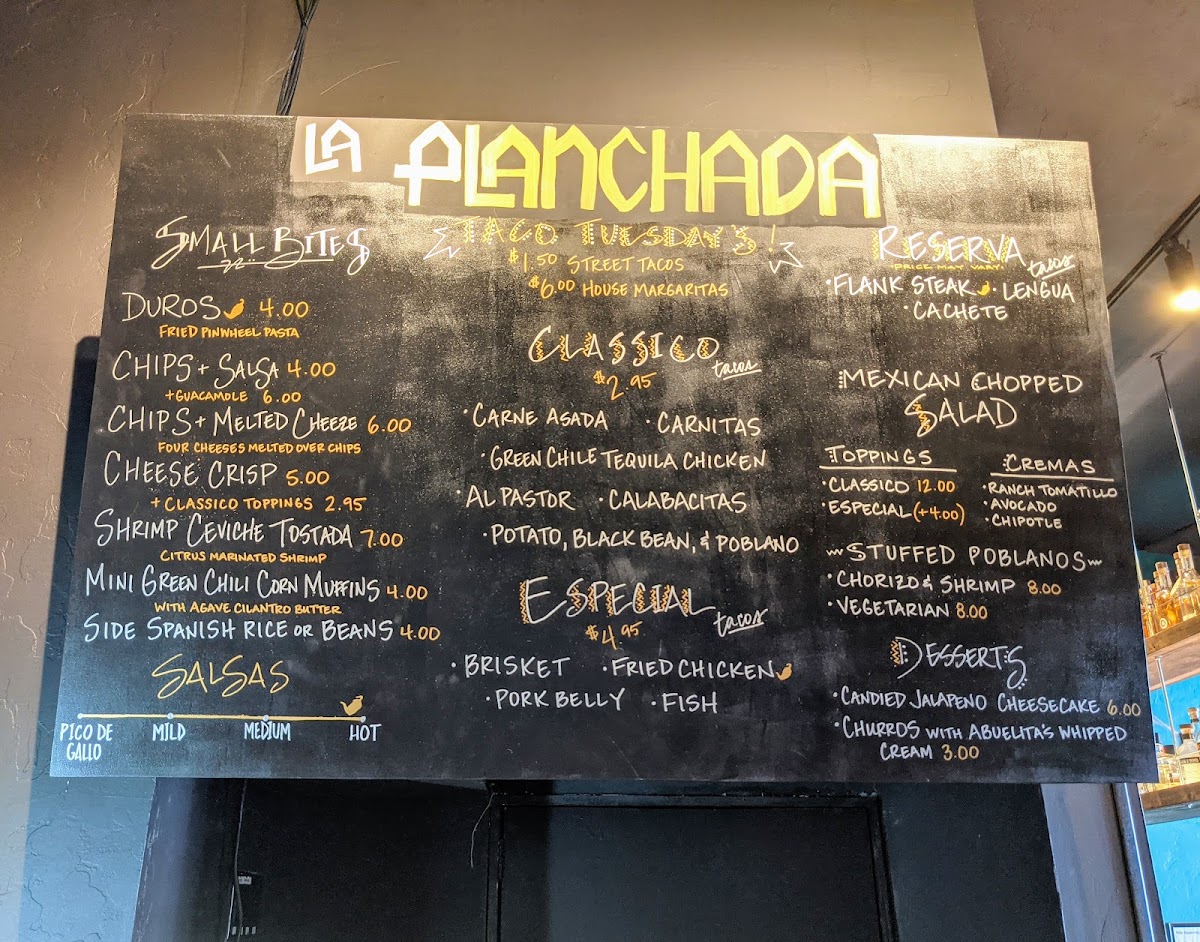 LA PLANCHADA
SMALL BITES
DUROS 4.00
FRIED PINWHEEL PASTA
CHIPS + SALSA 4.00
+GUACAMOLE 6.00
CHIPS + MELTED CHEEZE 6.00
FOUR CHEESES MELTED OVER CHIPS
CHEESE CRISP 5.00
+ CLASSICO TOPPINGS 2.95
SHRIMP CEVICHE TOSTADA 7.00
CITRUS MARINATED SHRIMP
MINI GREEN CHILI CORN MUFFINS 4.00
WITH AGAVE CILANTRO BUTTER
SIDE SPANISH RICE OR BEANS 4.00
SALSAS
PICO DE GALLO
MILD
MEDIUM
HOT
TACO TUESDAY'S!
$1.50 STREET TACOS
$6.00 HOUSE MARGARITAS
CLASSICO tacos
$2.95
•CARNE ASADA •CARNITAS
•GREEN CHILE TEQUILA CHICKEN
•AL PASTOR •CALABACITAS
•POTATO, BLACK BEAN, & POBLANO
ESPECIAL tacos
$4.95
•BRISKET •FRIED CHICKEN
•PORK BELLY •FISH
RESERVA tacos
PRICE MAY VARY
•FLANK STEAK •LENGUA
•CACHETE
MEXICAN CHOPPED
SALAD
TOPPINGS
•CLASSICO 12.00
•ESPECIAL (+4.00)
CREMAS
•RANCH TOMATILLO
•AVOCADO
•CHIPOTLE
STUFFED POBLANOS
•CHORIZO & SHRIMP 8.00
•VEGETARIAN 8.00
DESSERTS
•CANDIED JALAPENO CHEESECAKE 6.00
•CHURROS WITH ABUELITA'S WHIPPED
CREAM 3.00